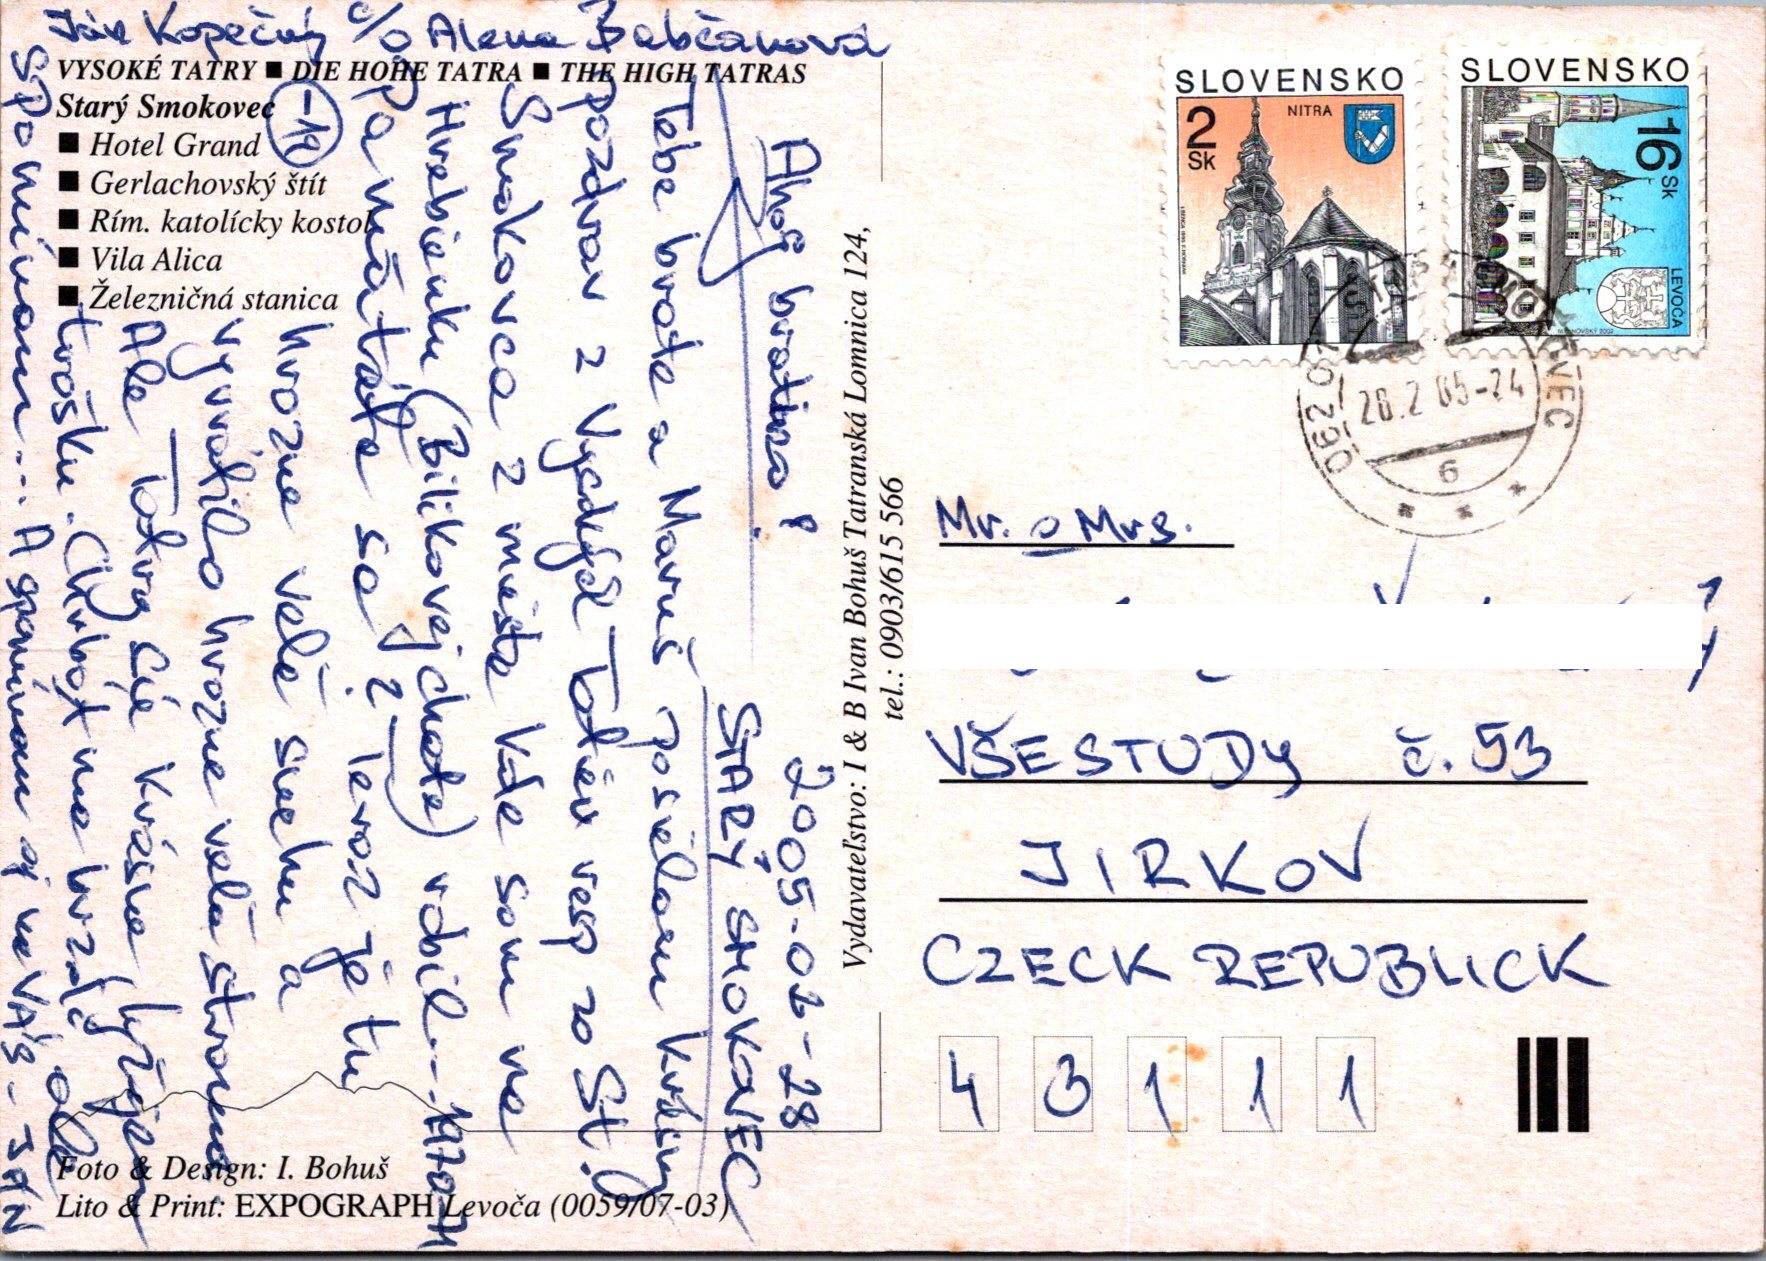 Ján Kopečný c/o Alena Babčanová
VYSOKÉ TATRY ■ DIE HOHE TATRA ■ THE HIGH TATRAS
Starý Smokovec
■ Hotel Grand
■ Gerlachovský štít
■ Rím. katolícky kostol
■ Vila Alica
■ Železničná stanica
2005-02-28
Ahoj bratino!
STARÝ SMOKOVEC
Tebe brate a Maruš posielam krásny
pozdrav z Vysokých Tatier resp zo St.
Smokovca z miesta kde som na
Hrebienku (Bilikovej chate) robil... 1970-71
pamätáte sa? Teraz je tu
hrozne veľa snehu a
vyvrátilo hrozne veľa stromov
Ale Tatry sú krásne lyžujem
trošku. Chrbát ma bolí ale
spomínam... A spomínam aj na VÁS - JÁN
Vydavateľstvo: I & B Ivan Bohuš Tatranská Lomnica 124,
tel.: 0903/615 566
SLOVENSKO
2 Sk
NITRA
SLOVENSKO
16 Sk
LEVOČA
28.2.05-24
6
Mr. a Mrs.
VŠESTUDY č. 53
JIRKOV
CZECK REPUBLICK
43111
Foto & Design: I. Bohuš
Lito & Print: EXPOGRAPH Levoča (0059/07-03)